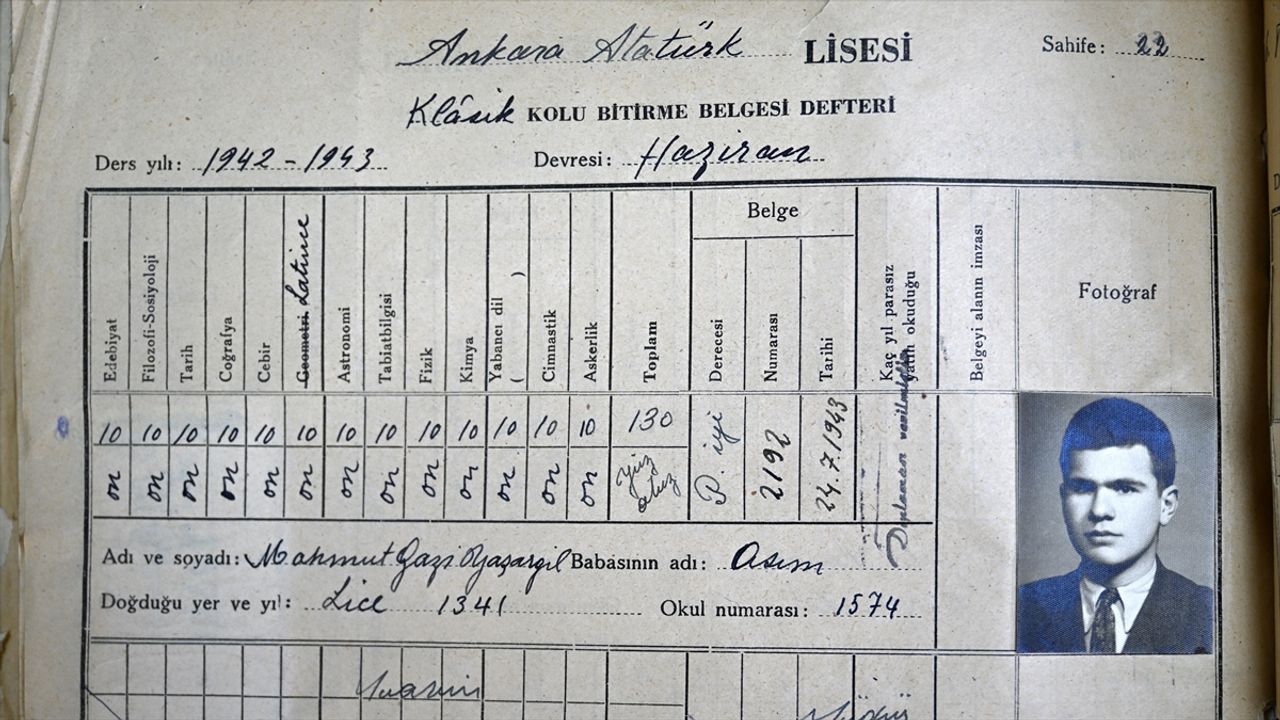 Ankara Atatürk LİSESİ
Sahife: 22
Klâsik KOLU BİTİRME BELGESİ DEFTERİ
Ders yılı: 1942-1943 Devresi: Haziran
Edebiyat
Filozofi-Sosiyoloji
Tarih
Coğrafya
Cebir
Geometri Latince
Astronomi
Tabiatbilgisi
Fizik
Kimya
Yabancı dil
( )
Cimnastik
Askerlik
Toplam
Belge
Derecesi
Numarası
Tarihi
Kaç yıl parasız
yatılı okuduğu
Belgeyi alanın imzası
Fotoğraf
10 10 10 10 10 10 10 10 10 10 10 10 10 130
on on on on on on on on on on on on on yüz
otuz
P. iyi
2192
24.7.1943
Diploması verilmiştir
Adı ve soyadı: Mahmut Gazi Yaşargil Babasının adı: Asım
Doğduğu yer ve yıl: Lice 1341 Okul numarası: 1574
Müdür